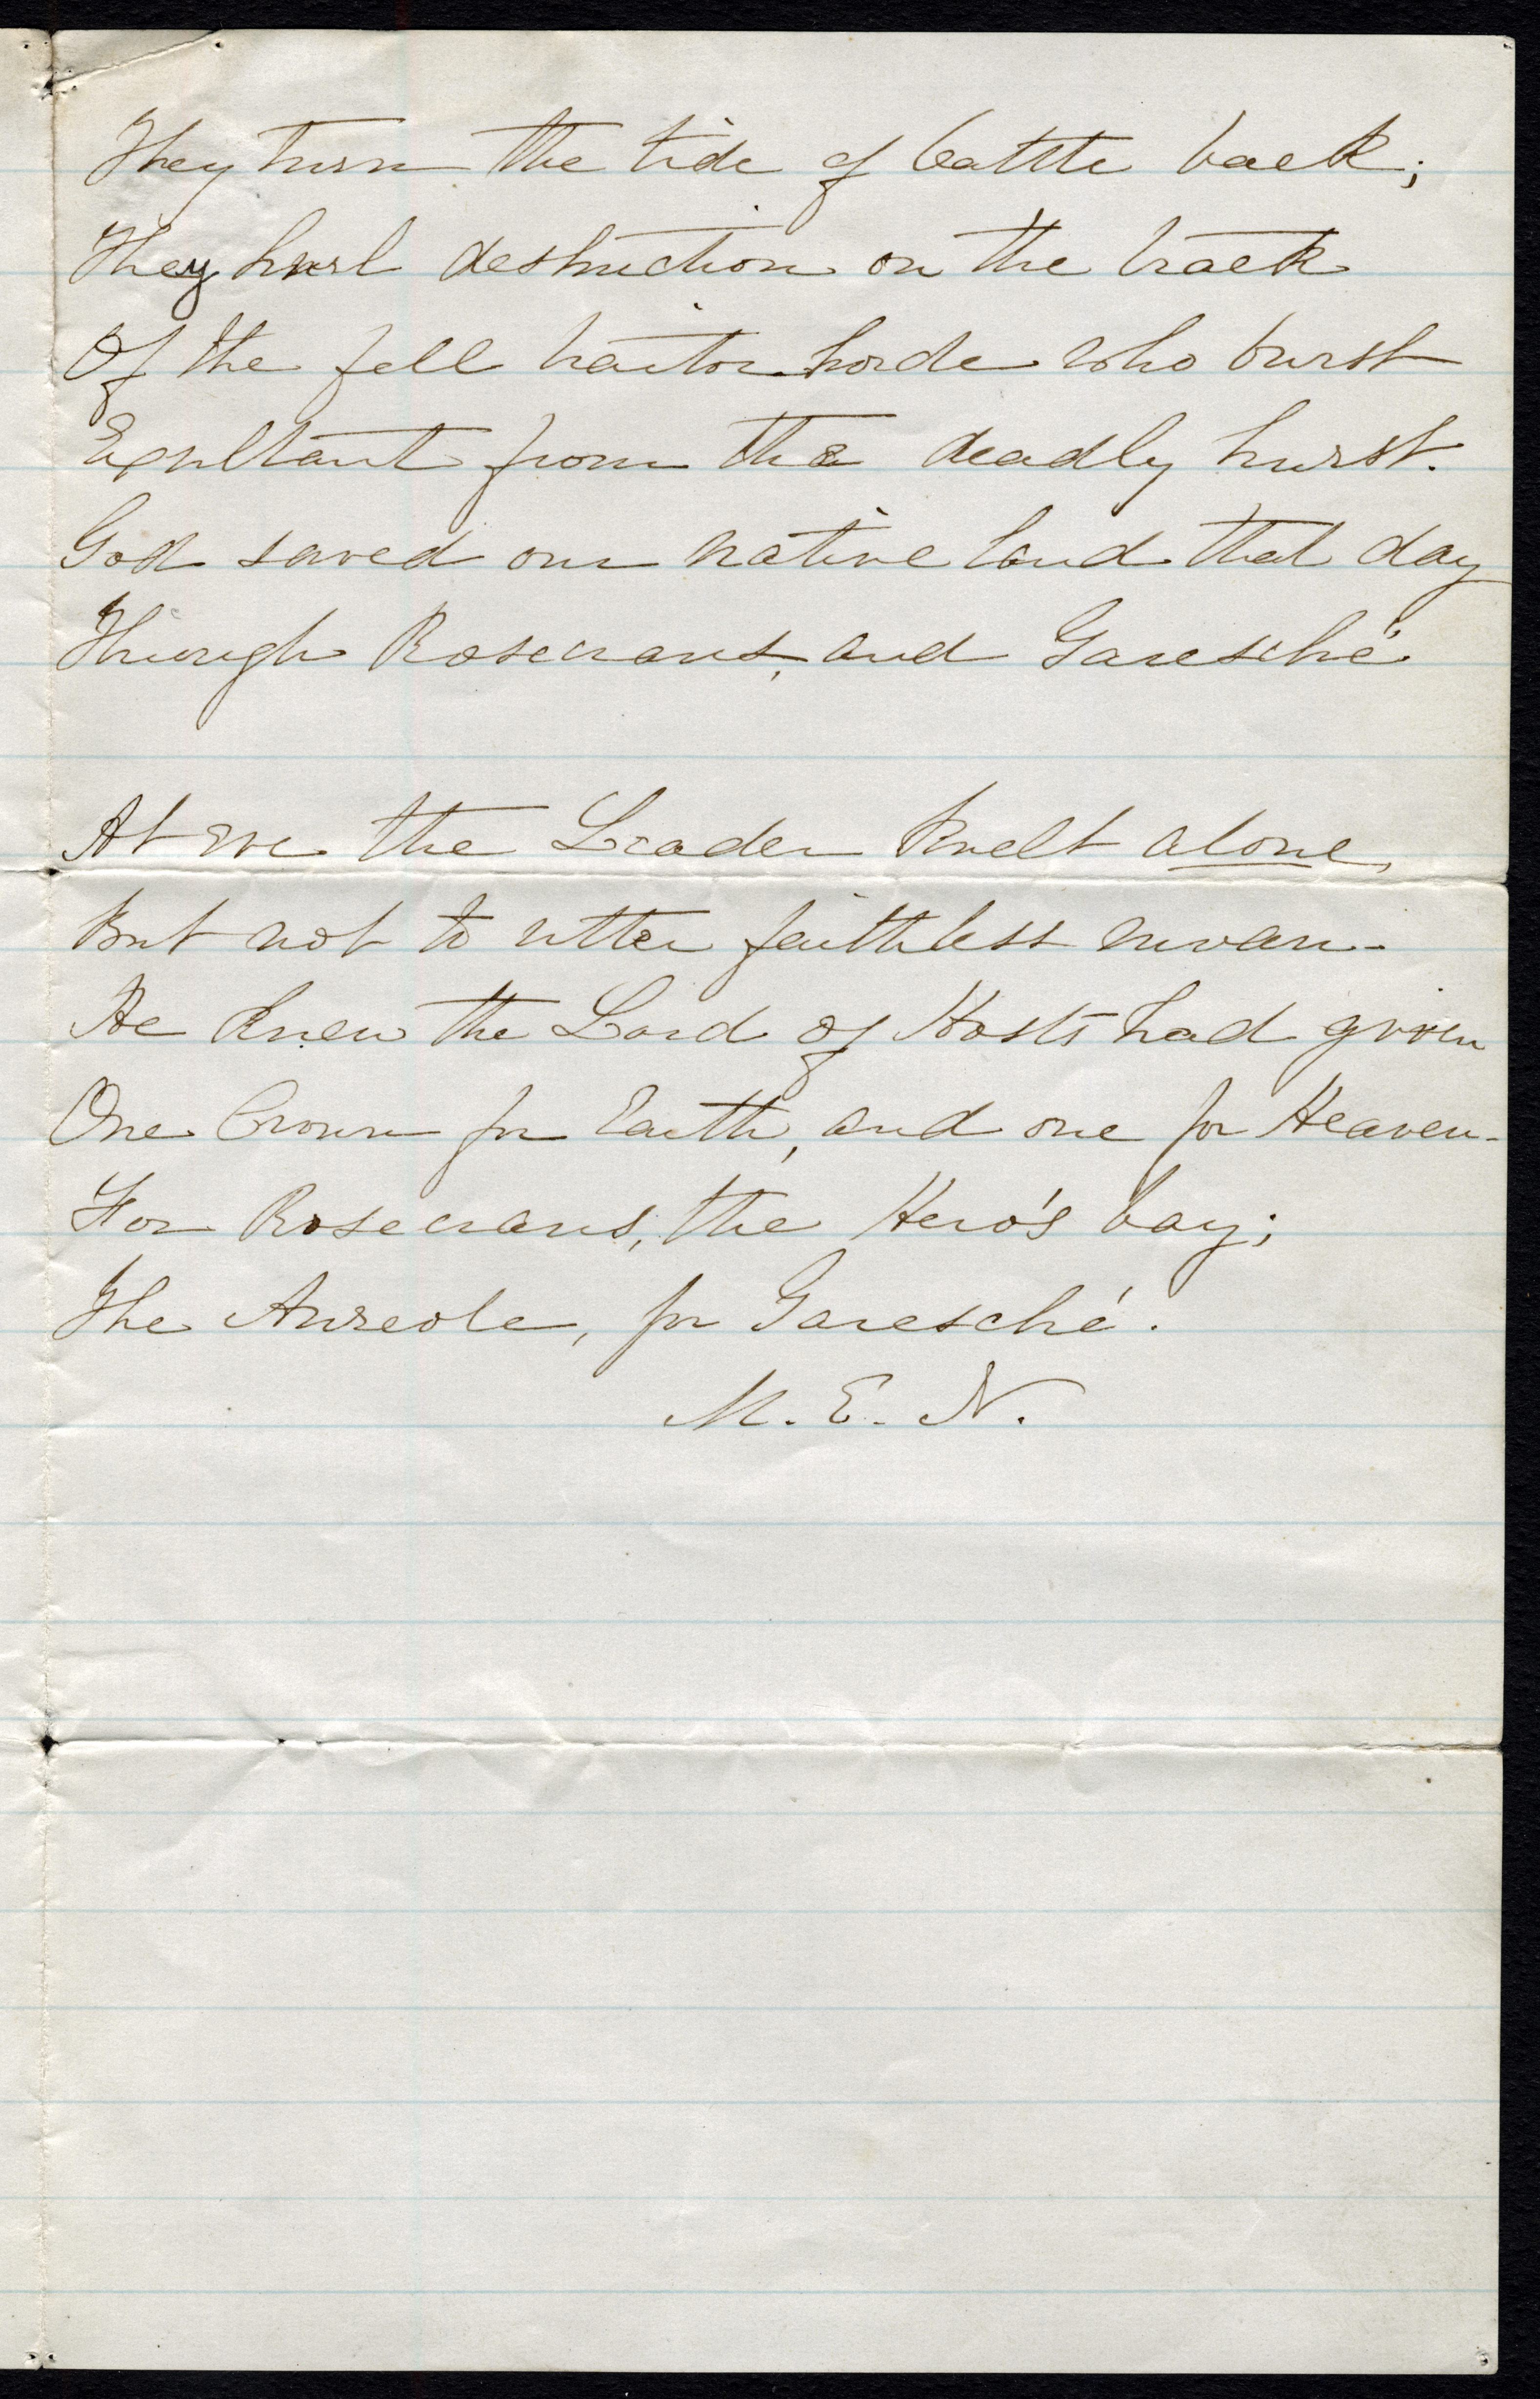 They turn the tide of battle back;
They hurl destruction on the track
Of the fell traitor horde who burst
Exultant from the deadly hurst.
God saved our native land that day
Through Rosecrans, and Garesché

At eve the Leader knelt alone,
But not to utter faithless moan-
He knew the Lord of Hosts had given
One Crown for Earth, and one for Heaven-
For Rosecrans, the Hero's bay;
The Aureole, for Garesché.
M. E. N.